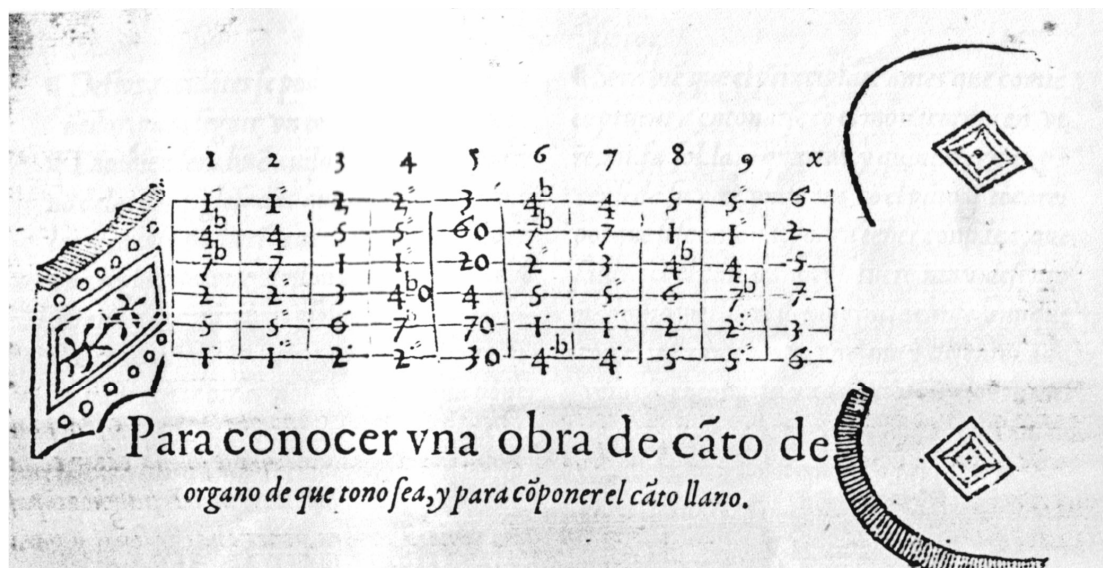 1 2 3 4 5 6 7 8 9 x
1 1'' 2 2'' 3 4b 4 5 5 6
4b 4 5 5 60 7b 7 1 1 2
7b 7 1 1 20 2 3 4b 4 5
2 2'' 3 4b0 4 5 5 6 7b 7
5 5 6 7b 70 1 1 2 2 3
1 1'' 2 2'' 30 4b 4 5 5 6
Para conocer vna obra de cãto de
organo de que tono ſea, y para cõponer el cãto llano.